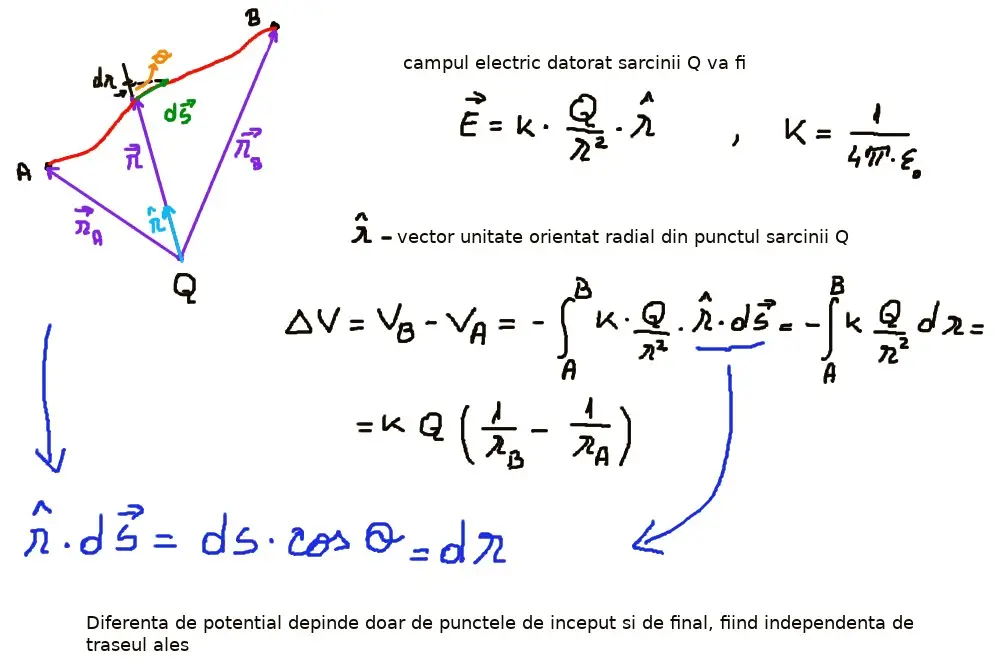 B
θ
dr
ds⃗
A
r⃗
r⃗_B
r⃗_A
r̂
Q
campul electric datorat sarcinii Q va fi
E⃗ = K · Q/r² · r̂ , K = 1/(4π·ε₀)
r̂ – vector unitate orientat radial din punctul sarcinii Q
ΔV = V_B - V_A = - ∫_A^B K · Q/r² · r̂ · ds⃗ = - ∫_A^B K Q/r² dr =
= K Q (1/r_B - 1/r_A)
r̂ · ds⃗ = ds · cos θ = dr
Diferenta de potential depinde doar de punctele de inceput si de final, fiind independenta de
traseul ales